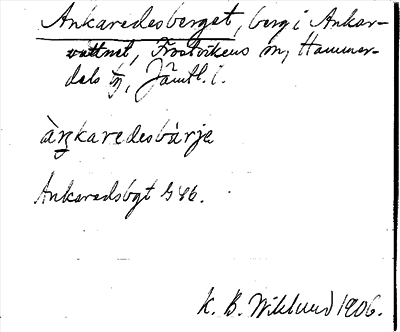 Ankaredesberget, berg i Ankar-
vattnet, Frostvikens sn, Hammer-
dals tg, Jämtl. l.
àŋkaredesbàrje
Ankaredsbgt GSb.
K. B. Wiklund 1906.